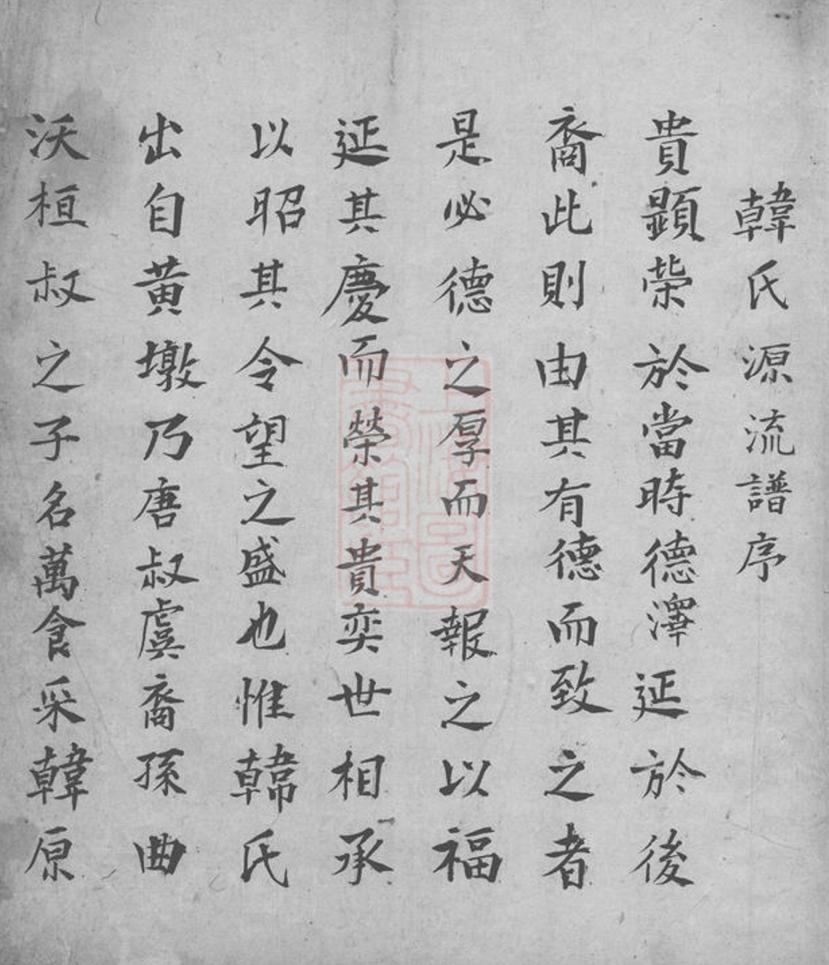 韓氏源流譜序
貴顕荣於當時德澤延於後
裔此則由其有德而致之者
是必德之厚而天報之以福
延其慶而榮其貴奕世相承
以昭其令望之盛也惟韓氏
出自黄墩乃唐叔虞裔孫曲
沃桓叔之子名萬食采韓原